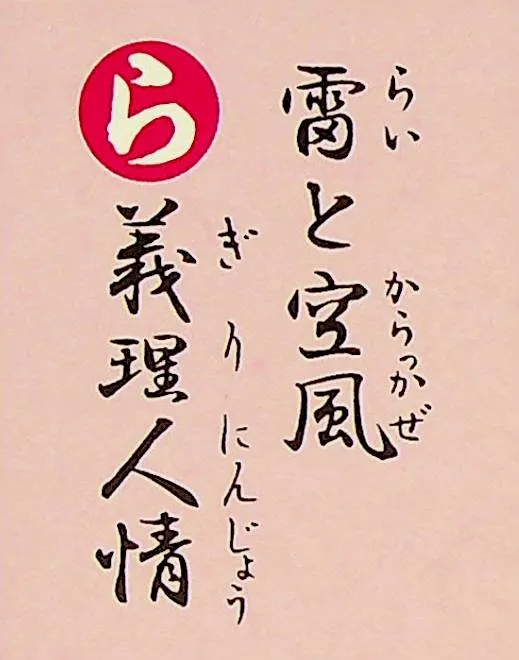 雷と空風
らい からっかぜ
ら
義理人情
ぎりにんじょう